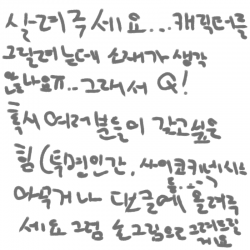 살려주세요...캐릭터를
그릴려는데 소재가 생각
안나요ㅠ...그래서 Q!
혹시 여러분들이 갖고싶은
힘(투명인간, 사이코키네시스
등...)
아무거나 댓글에 올려주
세요 그럼 손그림으로 그려드림